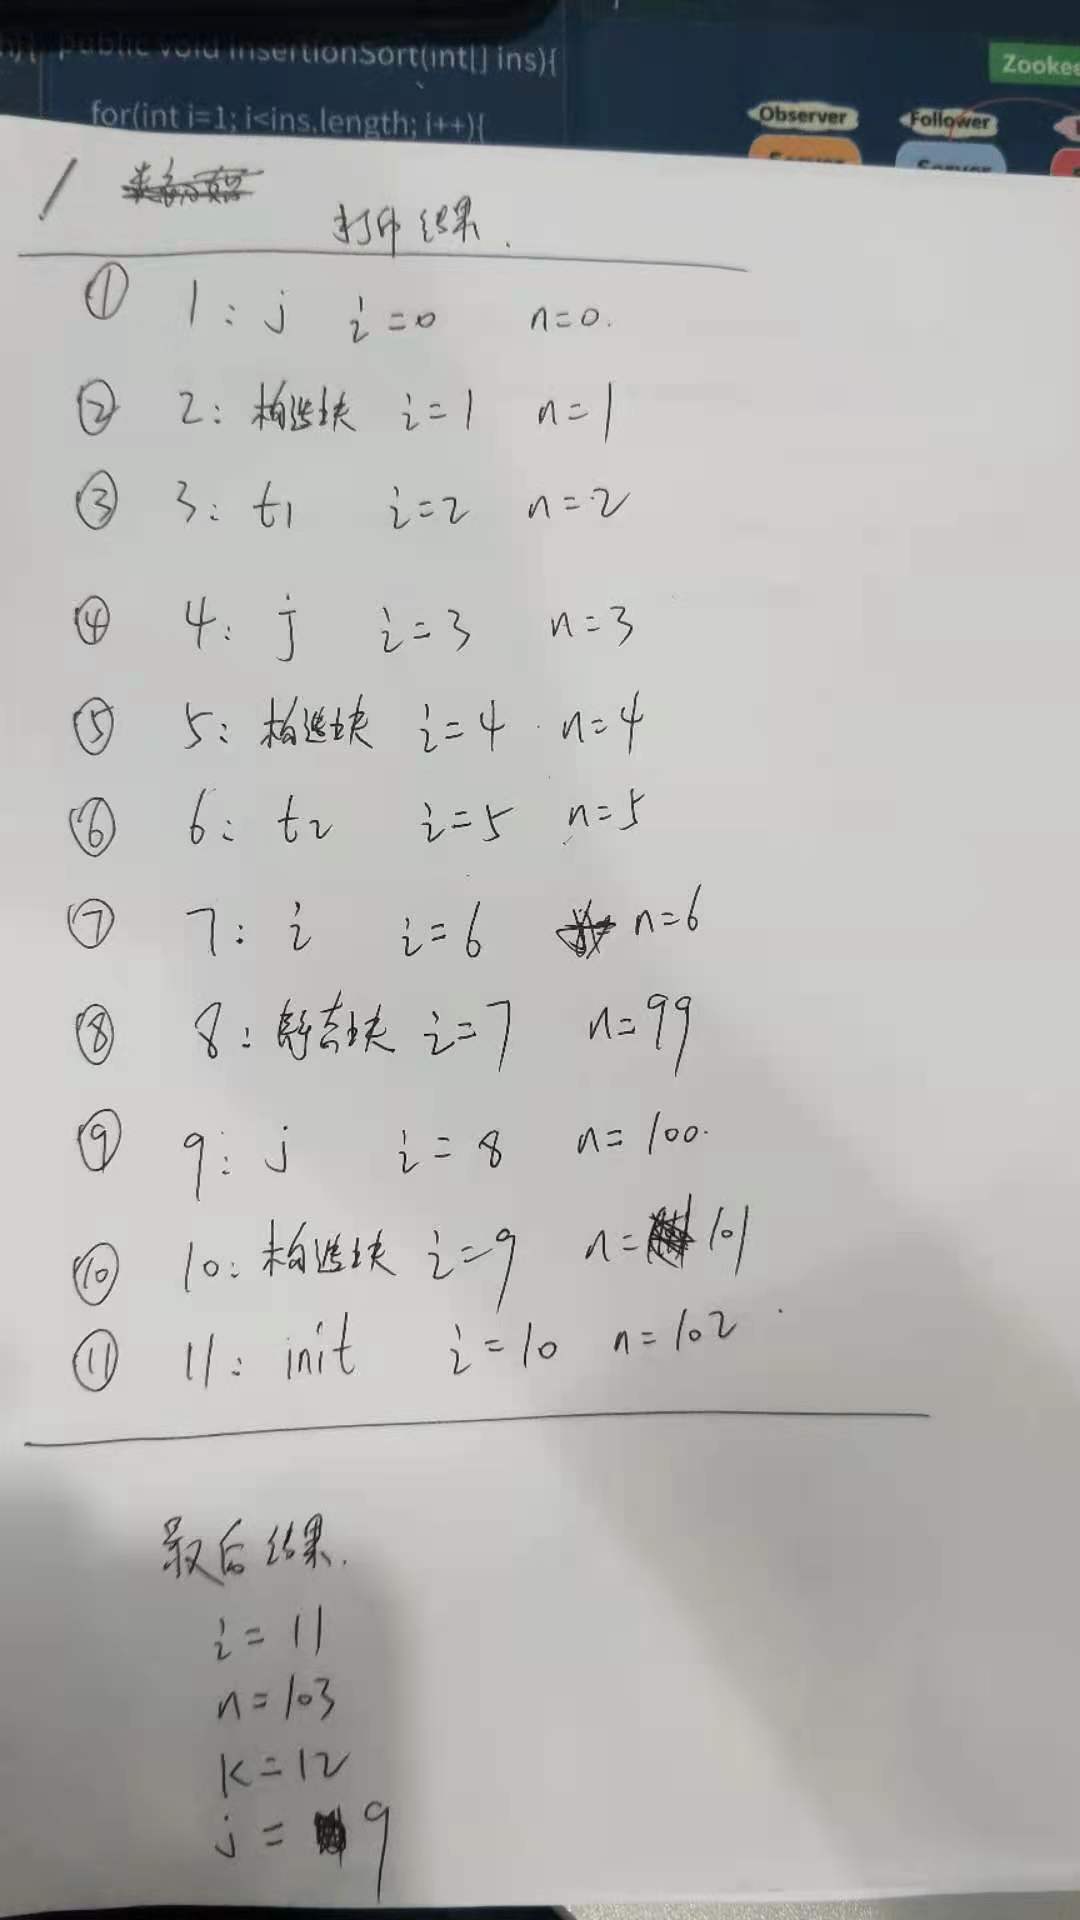 public void InsertionSort(int[] ins){
for(int i=1; i<ins.length; i++){
Zookee
Observer
Follower
Server
Server
打印结果.
① 1: j i=0 n=0.
② 2: 构造块 i=1 n=1
③ 3: t1 i=2 n=2
④ 4: j i=3 n=3
⑤ 5: 构造块 i=4 n=4
⑥ 6: t2 i=5 n=5
⑦ 7: i i=6 n=6
⑧ 8: 静态块 i=7 n=99
⑨ 9: j i=8 n=100.
⑩ 10: 构造块 i=9 n=101
⑪ 11: init i=10 n=102
最后结果.
i=11
n=103
k=12
j=9